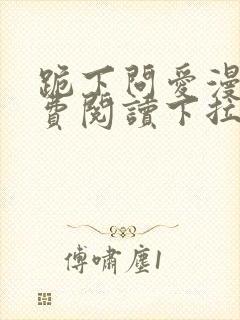 跪下問愛漫
費閱讀下拉
傅嘯塵1